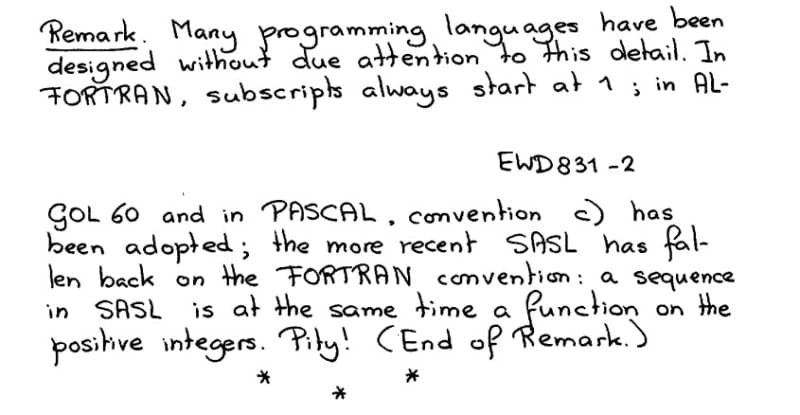 Remark. Many programming languages have been
designed without due attention to this detail. In
FORTRAN, subscripts always start at 1 ; in AL-
EWD831-2
GOL 60 and in PASCAL, convention c) has
been adopted; the more recent SASL has fal-
len back on the FORTRAN convention: a sequence
in SASL is at the same time a function on the
positive integers. Pity! (End of Remark.)
* * *